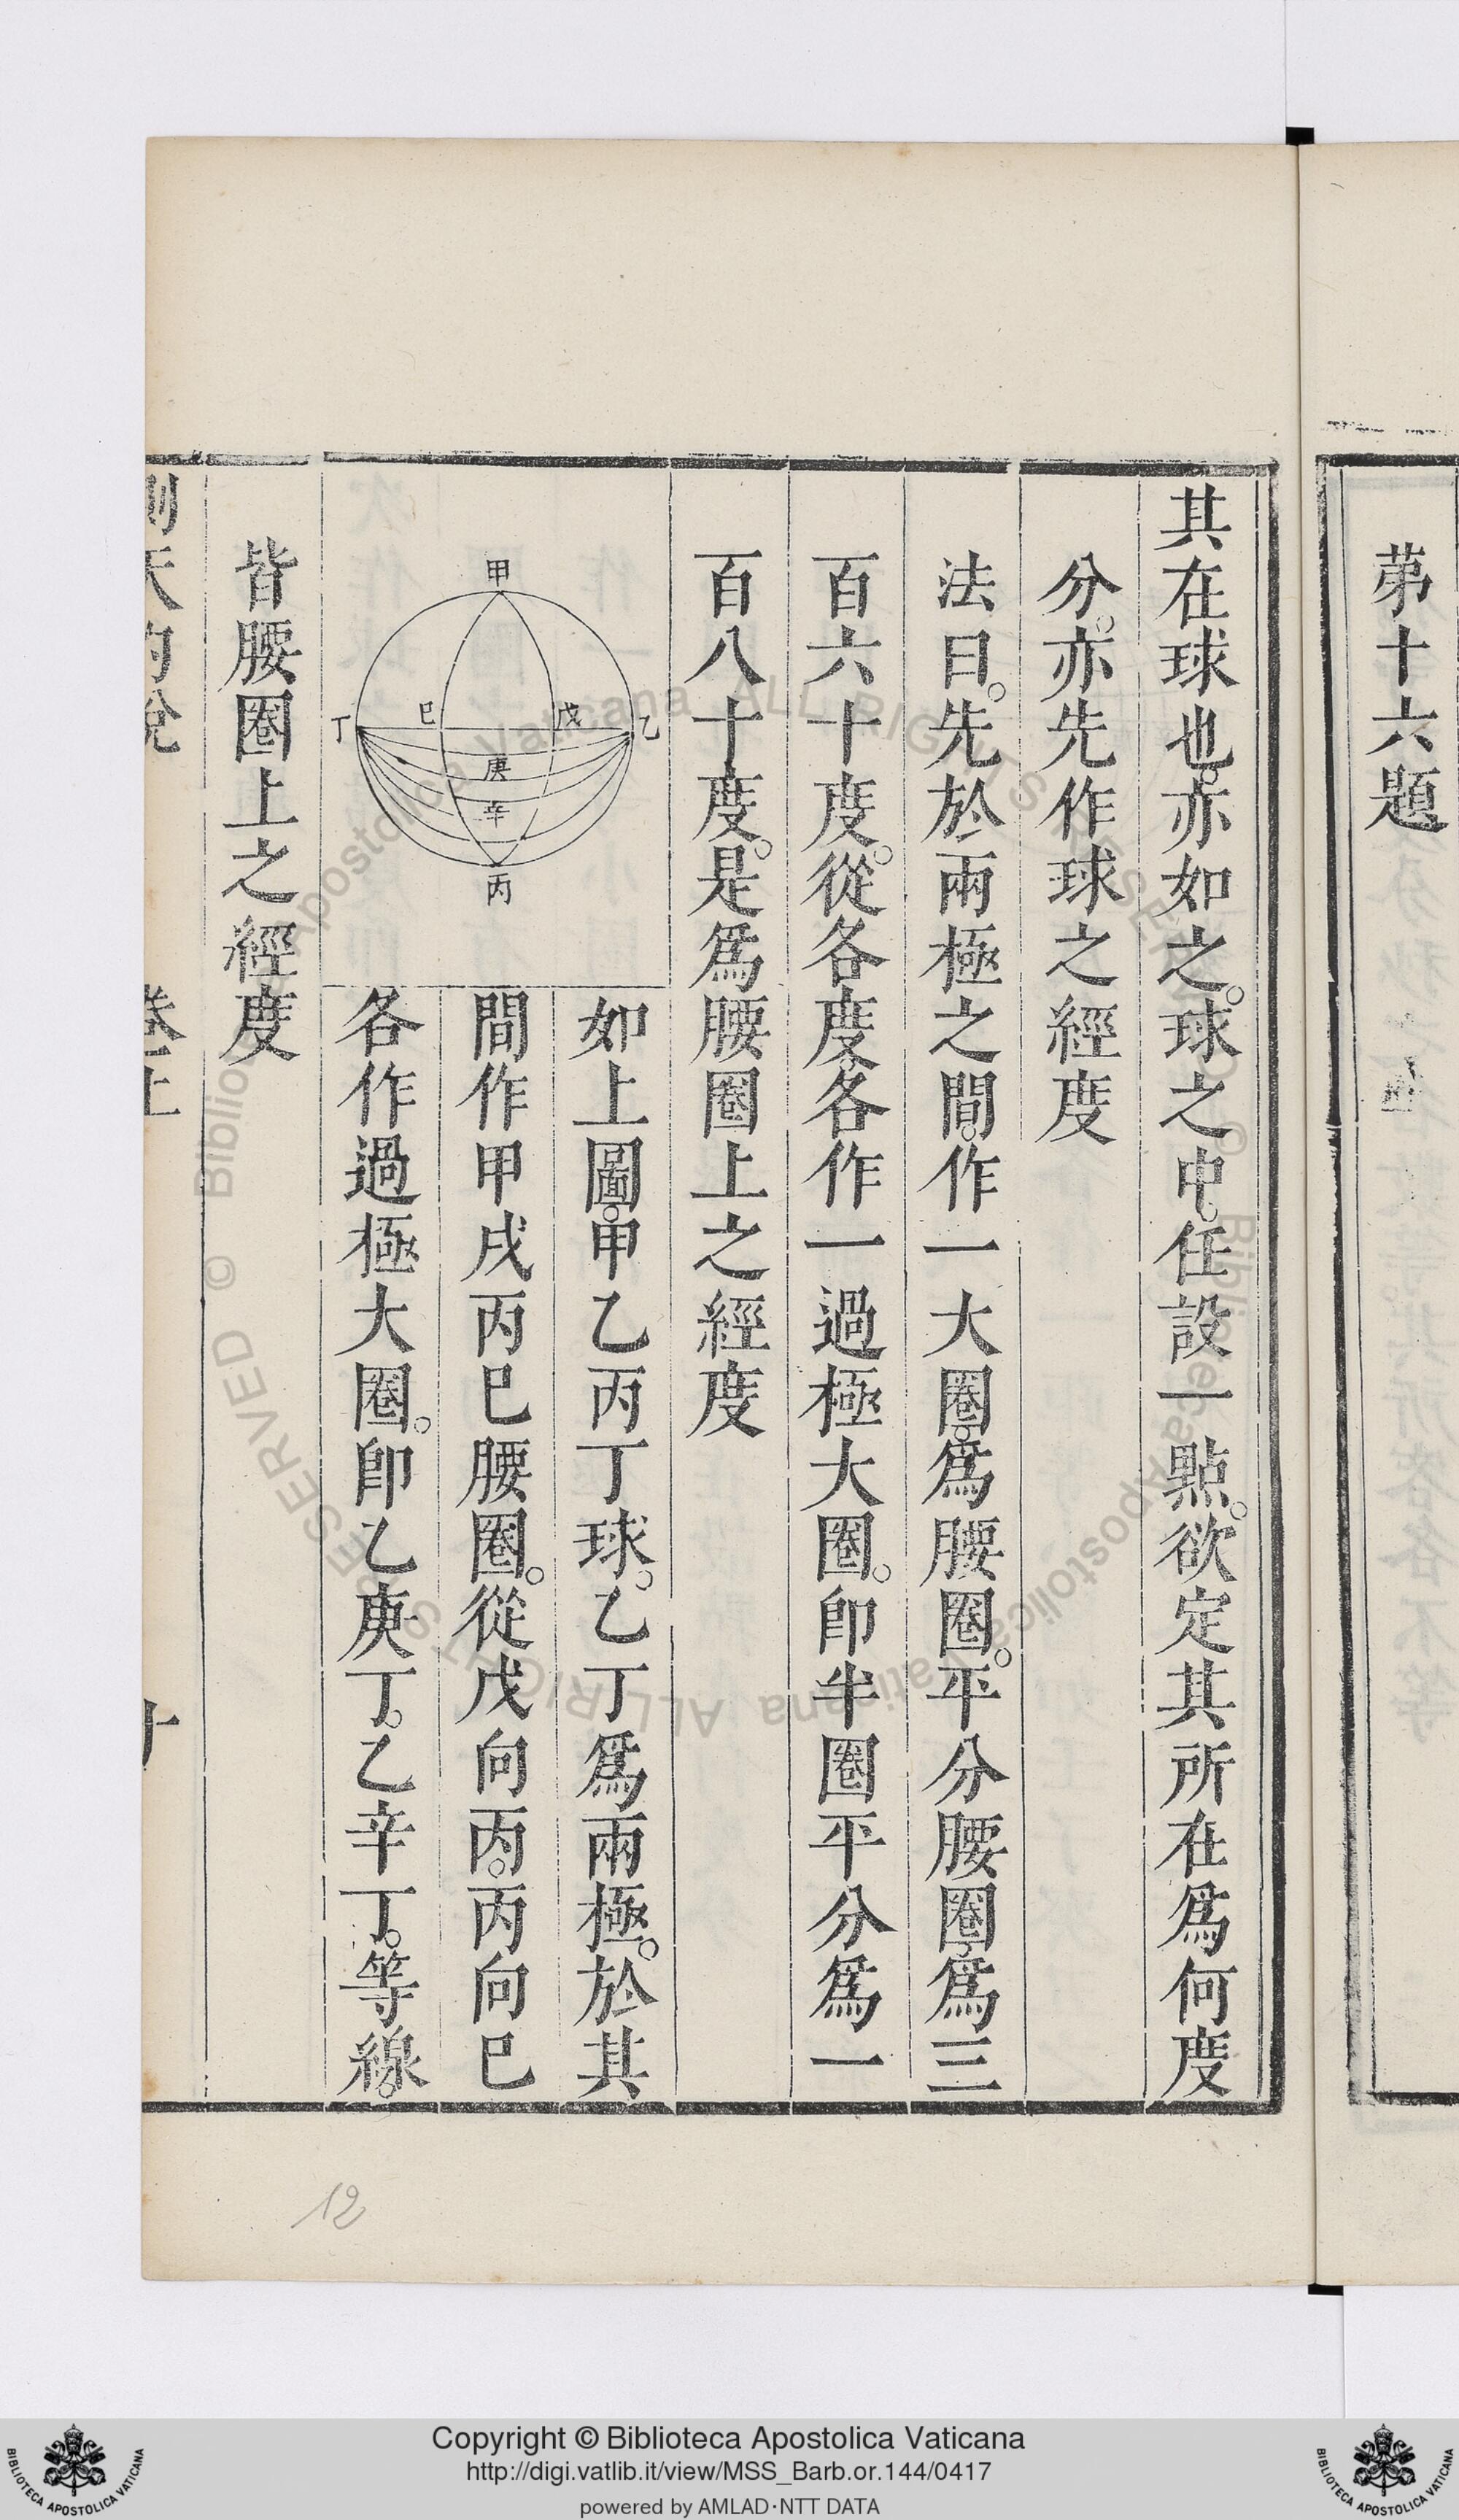 第十六題
其在球也。亦如之。球之中。任設一點。欲定其所在爲何度
分。亦先作球之經度
法曰。先於兩極之間。作一大圈。爲腰圈。平分腰圈。爲三
百六十度。從各度。各作一過極大圈。卽半圈平分爲一
百八十度。是爲腰圈上之經度
甲
乙
戊
巳
丁
庚
辛
丙
如上圖。甲乙丙丁球。乙丁爲兩極。於其
間作甲戌丙巳腰圈。從戊向丙。丙向巳
各作過極大圈。卽乙庚丁。乙辛丁。等線。
皆腰圈上之經度
測天約說
卷上
十
12
Copyright © Biblioteca Apostolica Vaticana
http://digi.vatlib.it/view/MSS_Barb.or.144/0417
powered by AMLAD·NTT DATA
BIBLIOTECA APOSTOLICA VATICANA
BIBLIOTECA APOSTOLICA VATICANA
© Biblioteca Apostolica Vaticana ALL RIGHTS RESERVED © Biblioteca Apostolica Vaticana ALL RIGHTS RESERVED